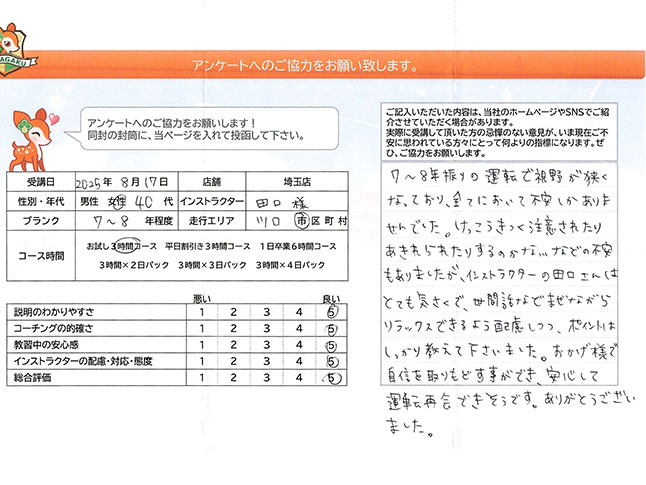 AGAKU
アンケートへのご協力をお願い致します。
アンケートへのご協力をお願いします！
同封の封筒に、当ページを入れて投函して下さい。
受講日 2025年 8月17日 店舗 埼玉店
性別・年代 男性 女性 40 代 インストラクター 田口 様
ブランク 7〜8 年程度 走行エリア 川口 市区町村
コース時間
お試し3時間コース 平日割引き3時間コース 1日卒業6時間コース
3時間×2日パック 3時間×3日パック 3時間×4日パック
悪い 良い
説明のわかりやすさ 1 2 3 4 5
コーチングの的確さ 1 2 3 4 5
教習中の安心感 1 2 3 4 5
インストラクターの配慮・対応・態度 1 2 3 4 5
総合評価 1 2 3 4 5
ご記入いただいた内容は、当社のホームページやSNSでご紹
介させていただく場合があります。
実際に受講して頂いた方の忌憚のない意見が、いま現在ご不
安に思われている方々にとって何よりの指標になります。ぜ
ひ、ご協力をお願いします。
7〜8年振りの運転で視野が狭く
なっており、全てにおいて不安しかありま
せんでした。けっこうきつく注意されたり
あきれられたりするのかな…などの不安
もありましたが、インストラクターの田口さんは
とても気さくで、世間話などまぜながら
リラックスできるよう配慮しつつ、ポイントは
しっかり教えて下さいました。おかげ様で
自信を取りもどす事ができ、安心して
運転再会できそうです。ありがとうござい
ました。